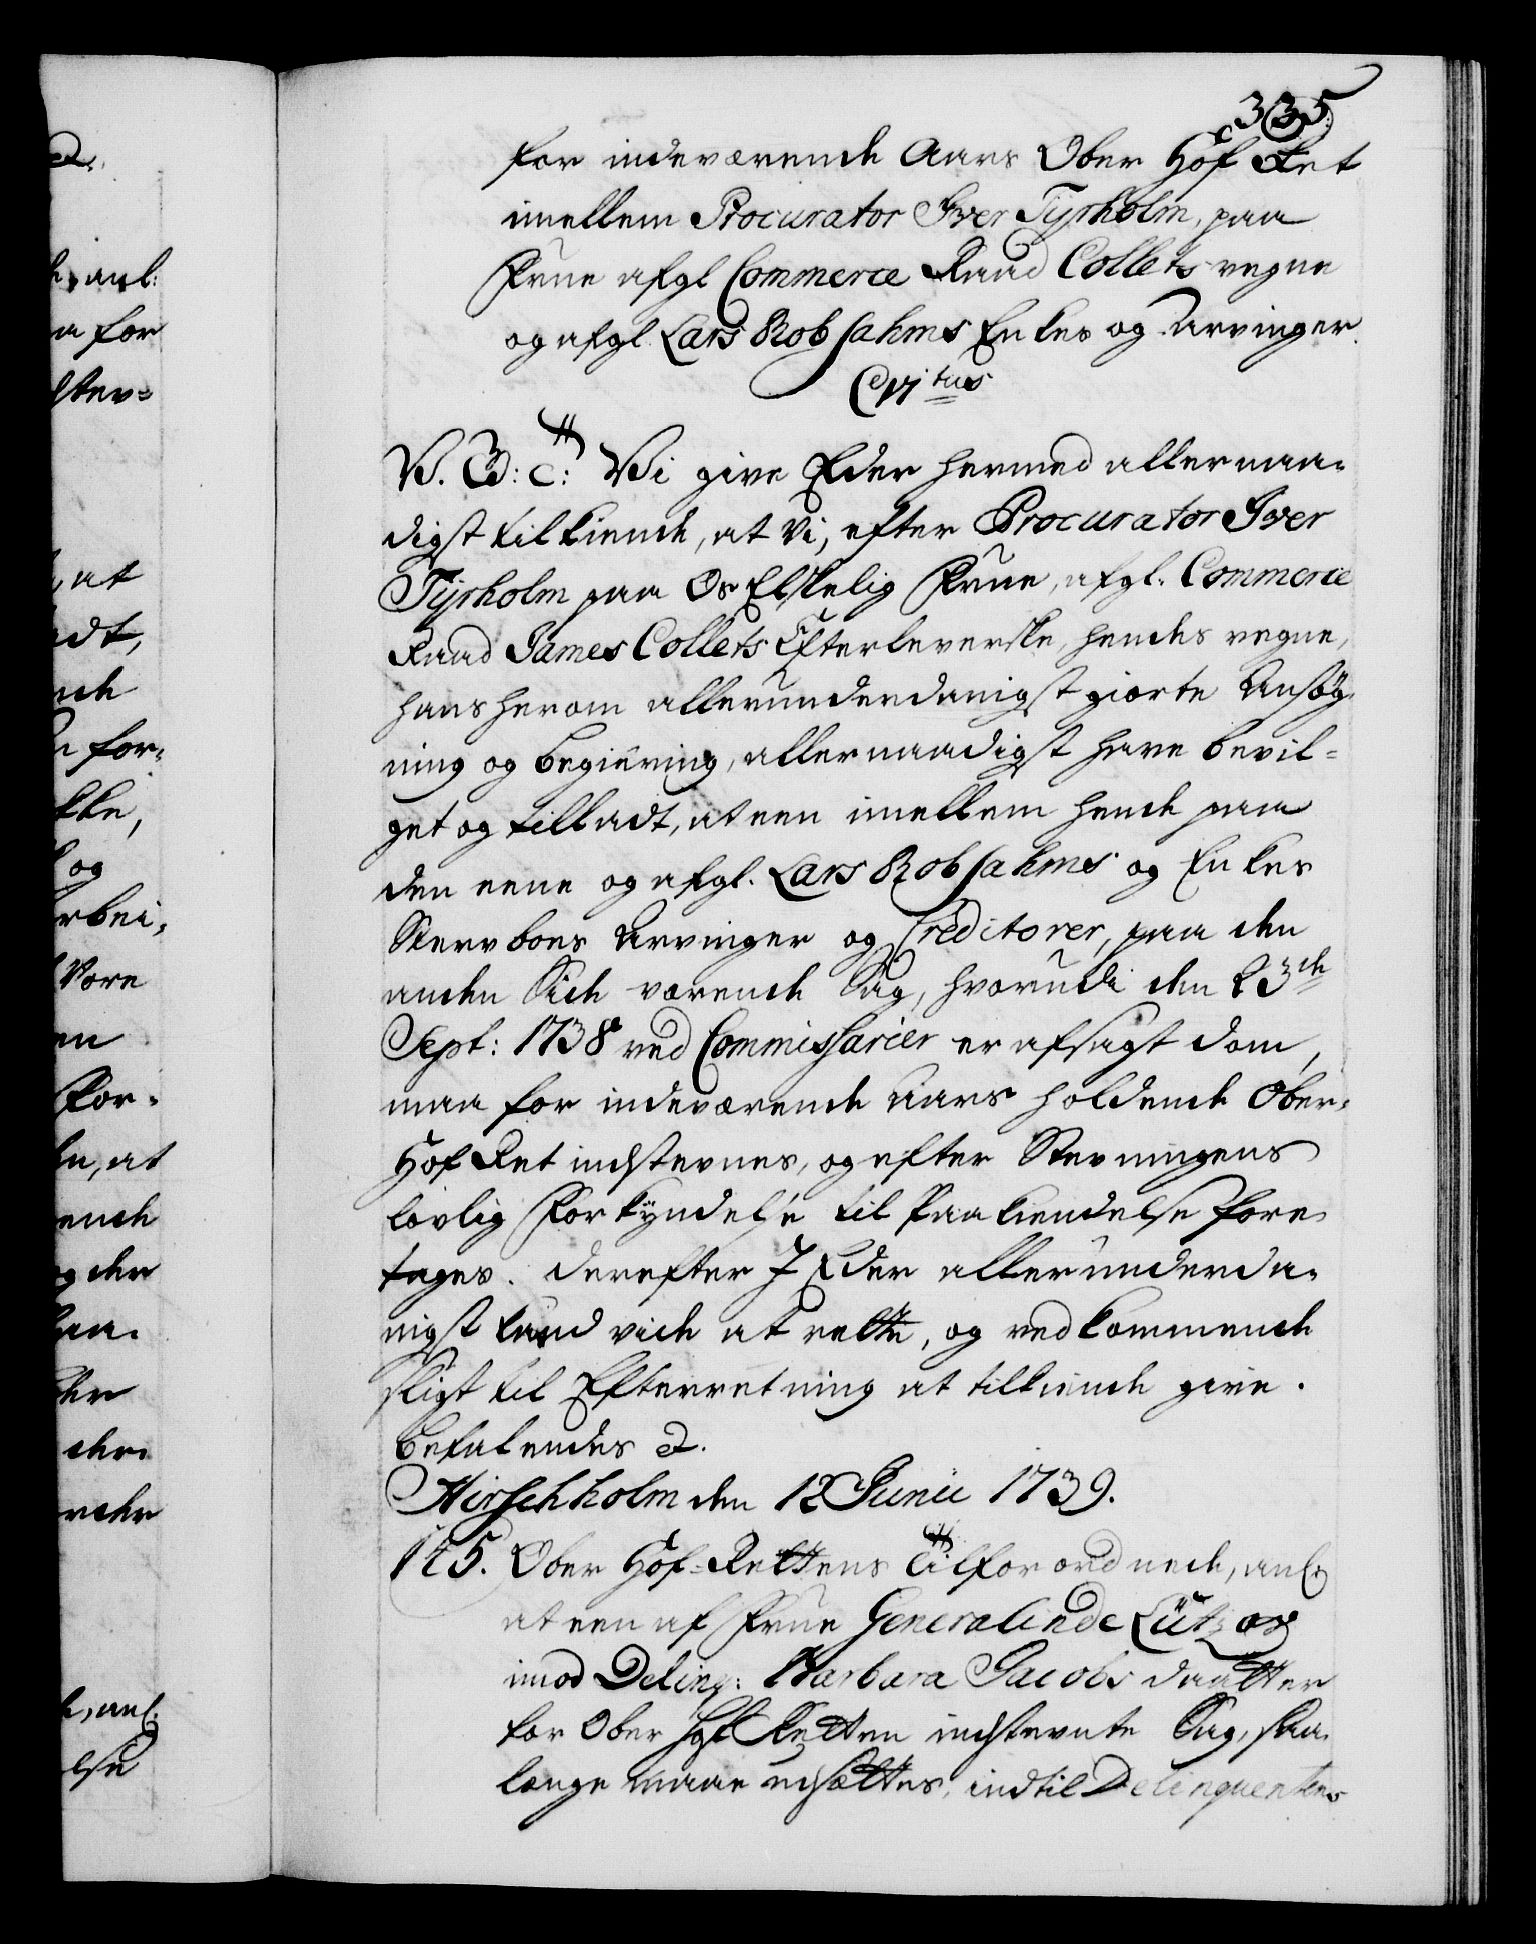 335
for indeværende Aars Ober Hof Ret
imellem Procurator Iver Tyrholm, paa
Frue afgl Commerce Raad Collets vegne
og afgl. Lars Robsahms Enkes og Arvinger
V. G: c: Vi give Eder hermed allernaa-
digst tilkiende, at Vi, efter Procurator Iver
Tyrholm paa Os Elskelig Frue, afgl. Commerce
Raad James Collets Efterleverske, hendes vegne,
hans herom allerunderdanigst giorte Ansøg-
ning og begiering, allernaadigst have bevil-
get og tilladt, at een imellem hende paa
den eene og afgl. Lars Robsahms og Enkes
Stervboes Arvinger og Creditorer, paa den
anden Side værende Sag, hvorudi den 23de
Sept: 1738 ved Commissarier er afsagt dom,
maa for indeværende Aars holdende Ober-
Hof Ret indstevnes, og efter Stevningens
lovlig Forkyndelse til Paakiendelse fore-
tages. derefter I Eder allerunderda-
nigst kand vide at rette, og vedkommende
sligt til Efterretning at tilkiende give.
Befalendes &.
Hirschholm den 12 Junii 1739.
Ober Hof-Rettens Tilforordnede, anl:
at een af Frue Generalinde Lützow
imod Delinq: Barbara Jacobs daatter
for Ober Hof Retten indstevnte Sag, saa
længe maae udsættes, indtil Delinquentens